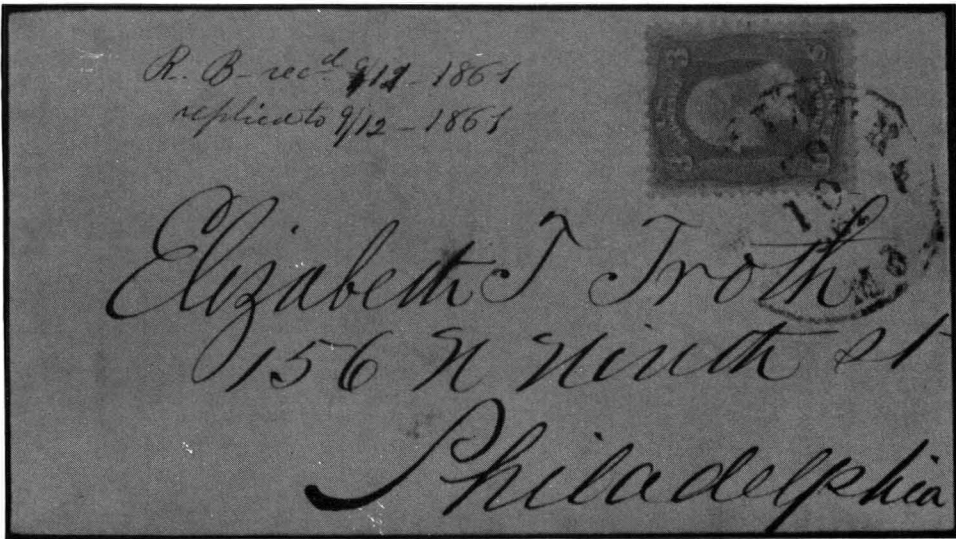 R. B- rec.d 9/12 - 1861
replied to 9/12 - 1861
3 3
3 3
10
MD
Elizabeth T Troth
156 N Ninth st
Philadelphia